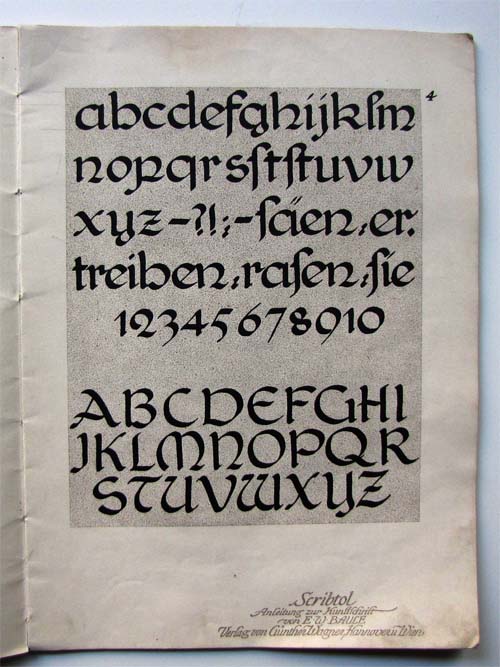 4
abcdefghijklm
nopqrsſtſtuvw
xyz-?!;-ſäen,er.
treiben,raſen,ſie
12345678910
ABCDEFGHI
JKLMNOPQR
STUVWXYZ
Scribtol
Anleitung zur Kunſtſchrift
von E. W. BAULE.
Verlag von Günther Wagner, Hannover u Wien